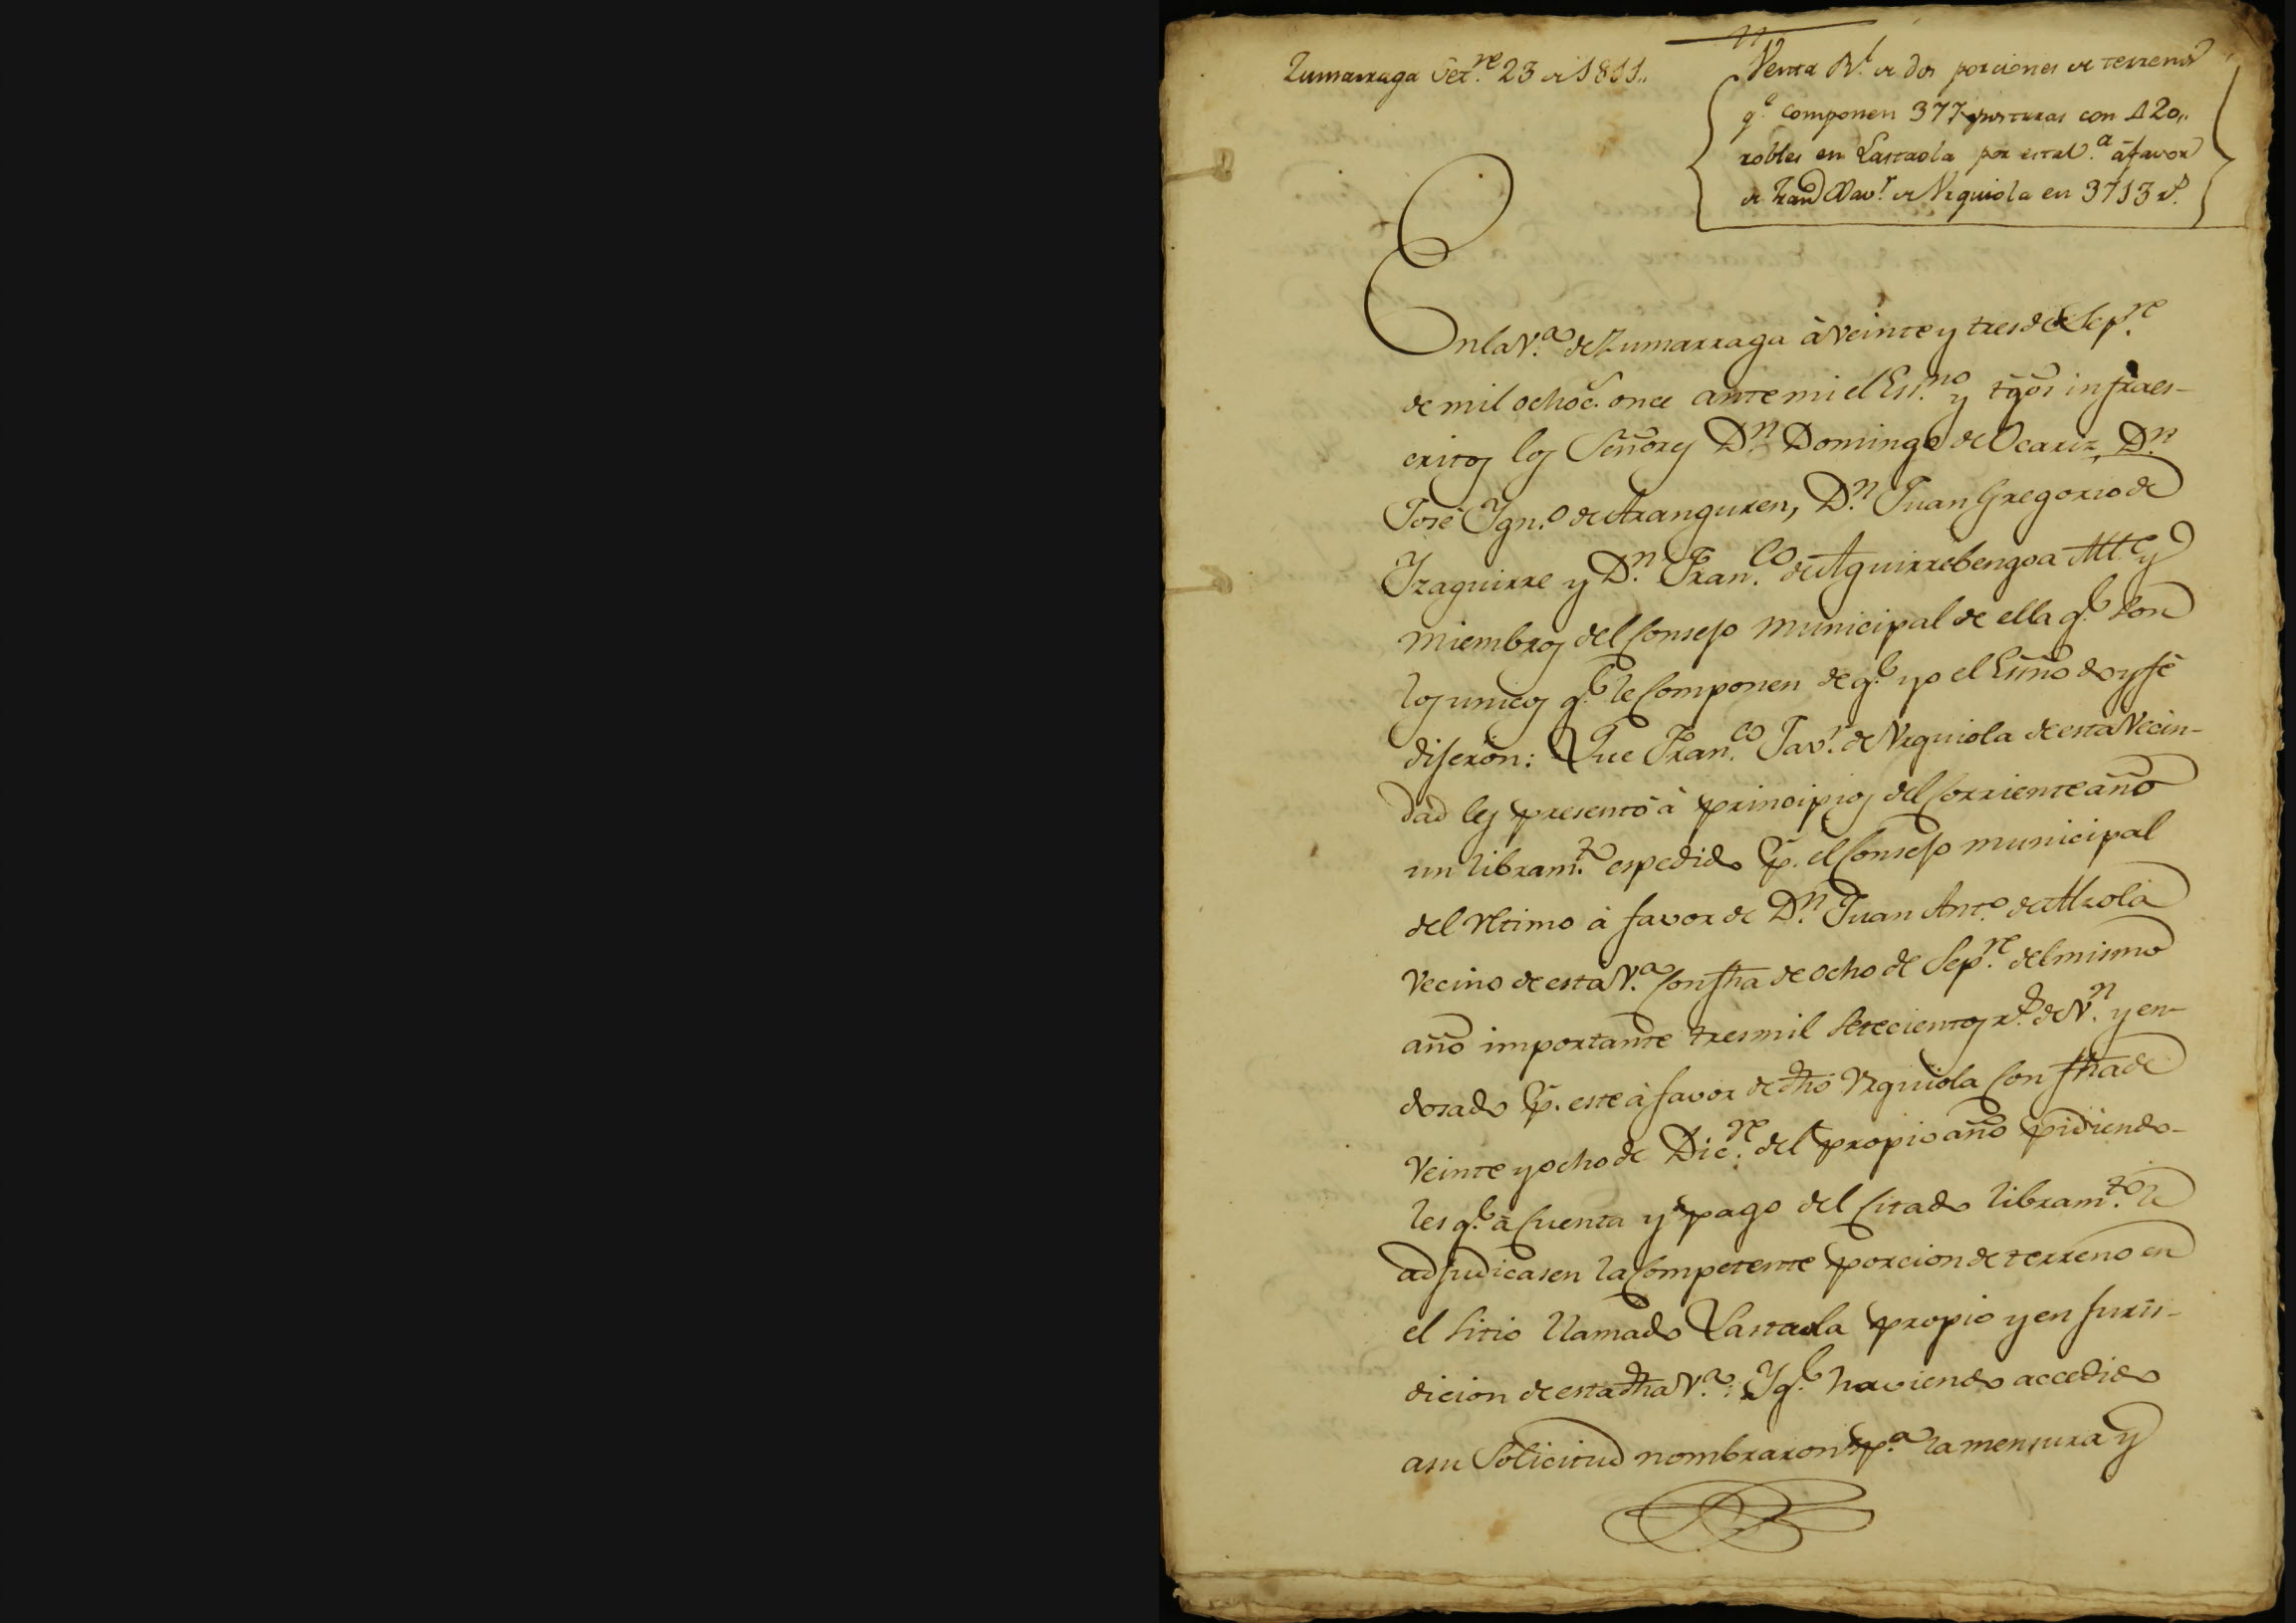 Zumarraga Set.re 23 de 1811..
Venta Rl. de dos porciones de terreno
q.e componen 377 posturas con 120,,
robles en Lastaola por esta V.a à favor
de Fran.co Xav.r de Urquiola en 3713 r.s
En la V.a de Zumarraga à veinte y tres de Sep.re
de mil ochoc.s once ante mi el Es.no y tgos infraes-
critos los Señores D.n Domingo de Ocariz, D.n
José Ygn.o de Aranguren, D.n Juan Gregorio de
Yzaguirre y D.n Fran.co de Aguirrebengoa Alt.e y
miembros del Consejo municipal de ella q.e son
los unicos q.e le componen de q.e yo el Essno doy fé
dijeron: Que Fran.co Jav.r de Urquiola de esta vecin-
dad les presentó à principios del corriente año
un libram.to espedido p.r el Consejo municipal
del ultimo à favor de D.n Juan Ant.o de Alzola
vecino de esta V.a con fha de ocho de Sep.re del mismo
año importante tres mil setecientos r.s de V.n y en-
dosado p.r este à favor de dho Urquiola con fha de
veinte y ocho de Dic.re del propio año pidiendo-
les q.e à cuenta y pago del citado libram.to le
adjudicasen la competente porcion de terreno en
el sitio llamado Lastaola propio y en juris-
dicion de esta dha V.a: Y q.e haviendo accedido
a su solicitud nombraron p.a la mensura y